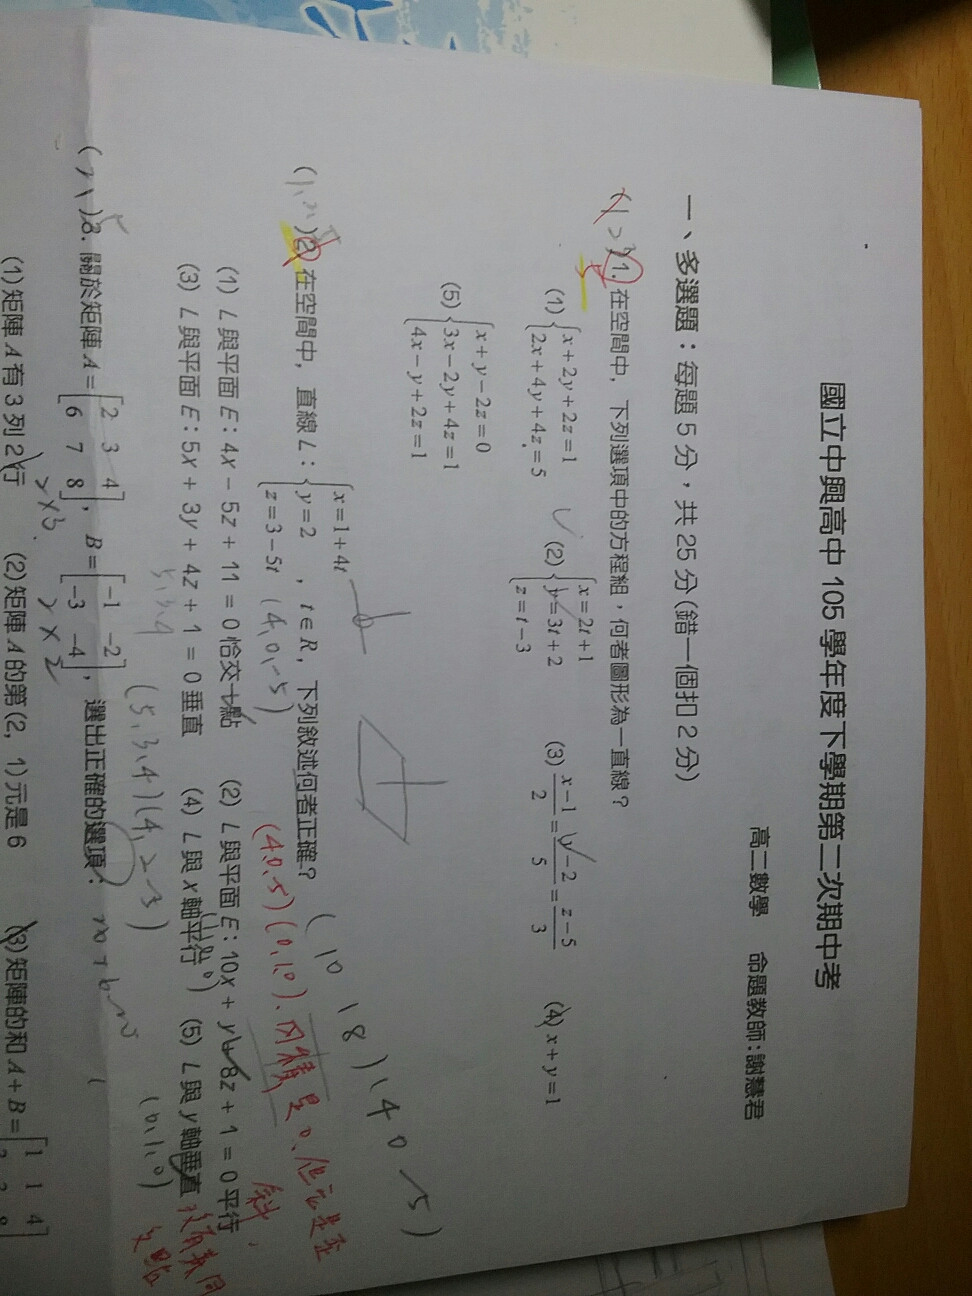 國立中興高中 105 學年度下學期第二次期中考
高二數學 命題教師：謝慧君
一、多選題：每題 5 分，共 25 分(錯一個扣 2 分)
1. 在空間中，下列選項中的方程組，何者圖形為一直線？
(1) { x+2y+2z=1
2x+4y+4z=5
(2) { x=2t+1
y=3t+2
z=t−3
(3) (x−1)/2 = (y−2)/5 = (z−5)/3
(4) x+y=1
(5) { x+y−2z=0
3x−2y+4z=1
4x−y+2z=1
2. 在空間中，直線 L：{ x=1+4t
y=2
z=3−5t
，t∈R，下列敘述何者正確？
(4,0,-5)
(4,0,5)(0,1,0)
(1) L 與平面 E：4x−5z+11=0 恰交一點 (2) L 與平面 E：10x+y+8z+1=0 平行
(3) L 與平面 E：5x+3y+4z+1=0 垂直 (4) L 與 x 軸平行 (5) L 與 y 軸垂直
5,3,4
(0,1,0)
3. 關於矩陣 A=[2 3 4
6 7 8]，B=[−1 −2
−3 −4]，選出正確的選項：
2×3
2×2
(1) 矩陣 A 有 3 列 2 行 (2) 矩陣 A 的第(2, 1)元是 6 (3) 矩陣的和 A+B=[1 1 4